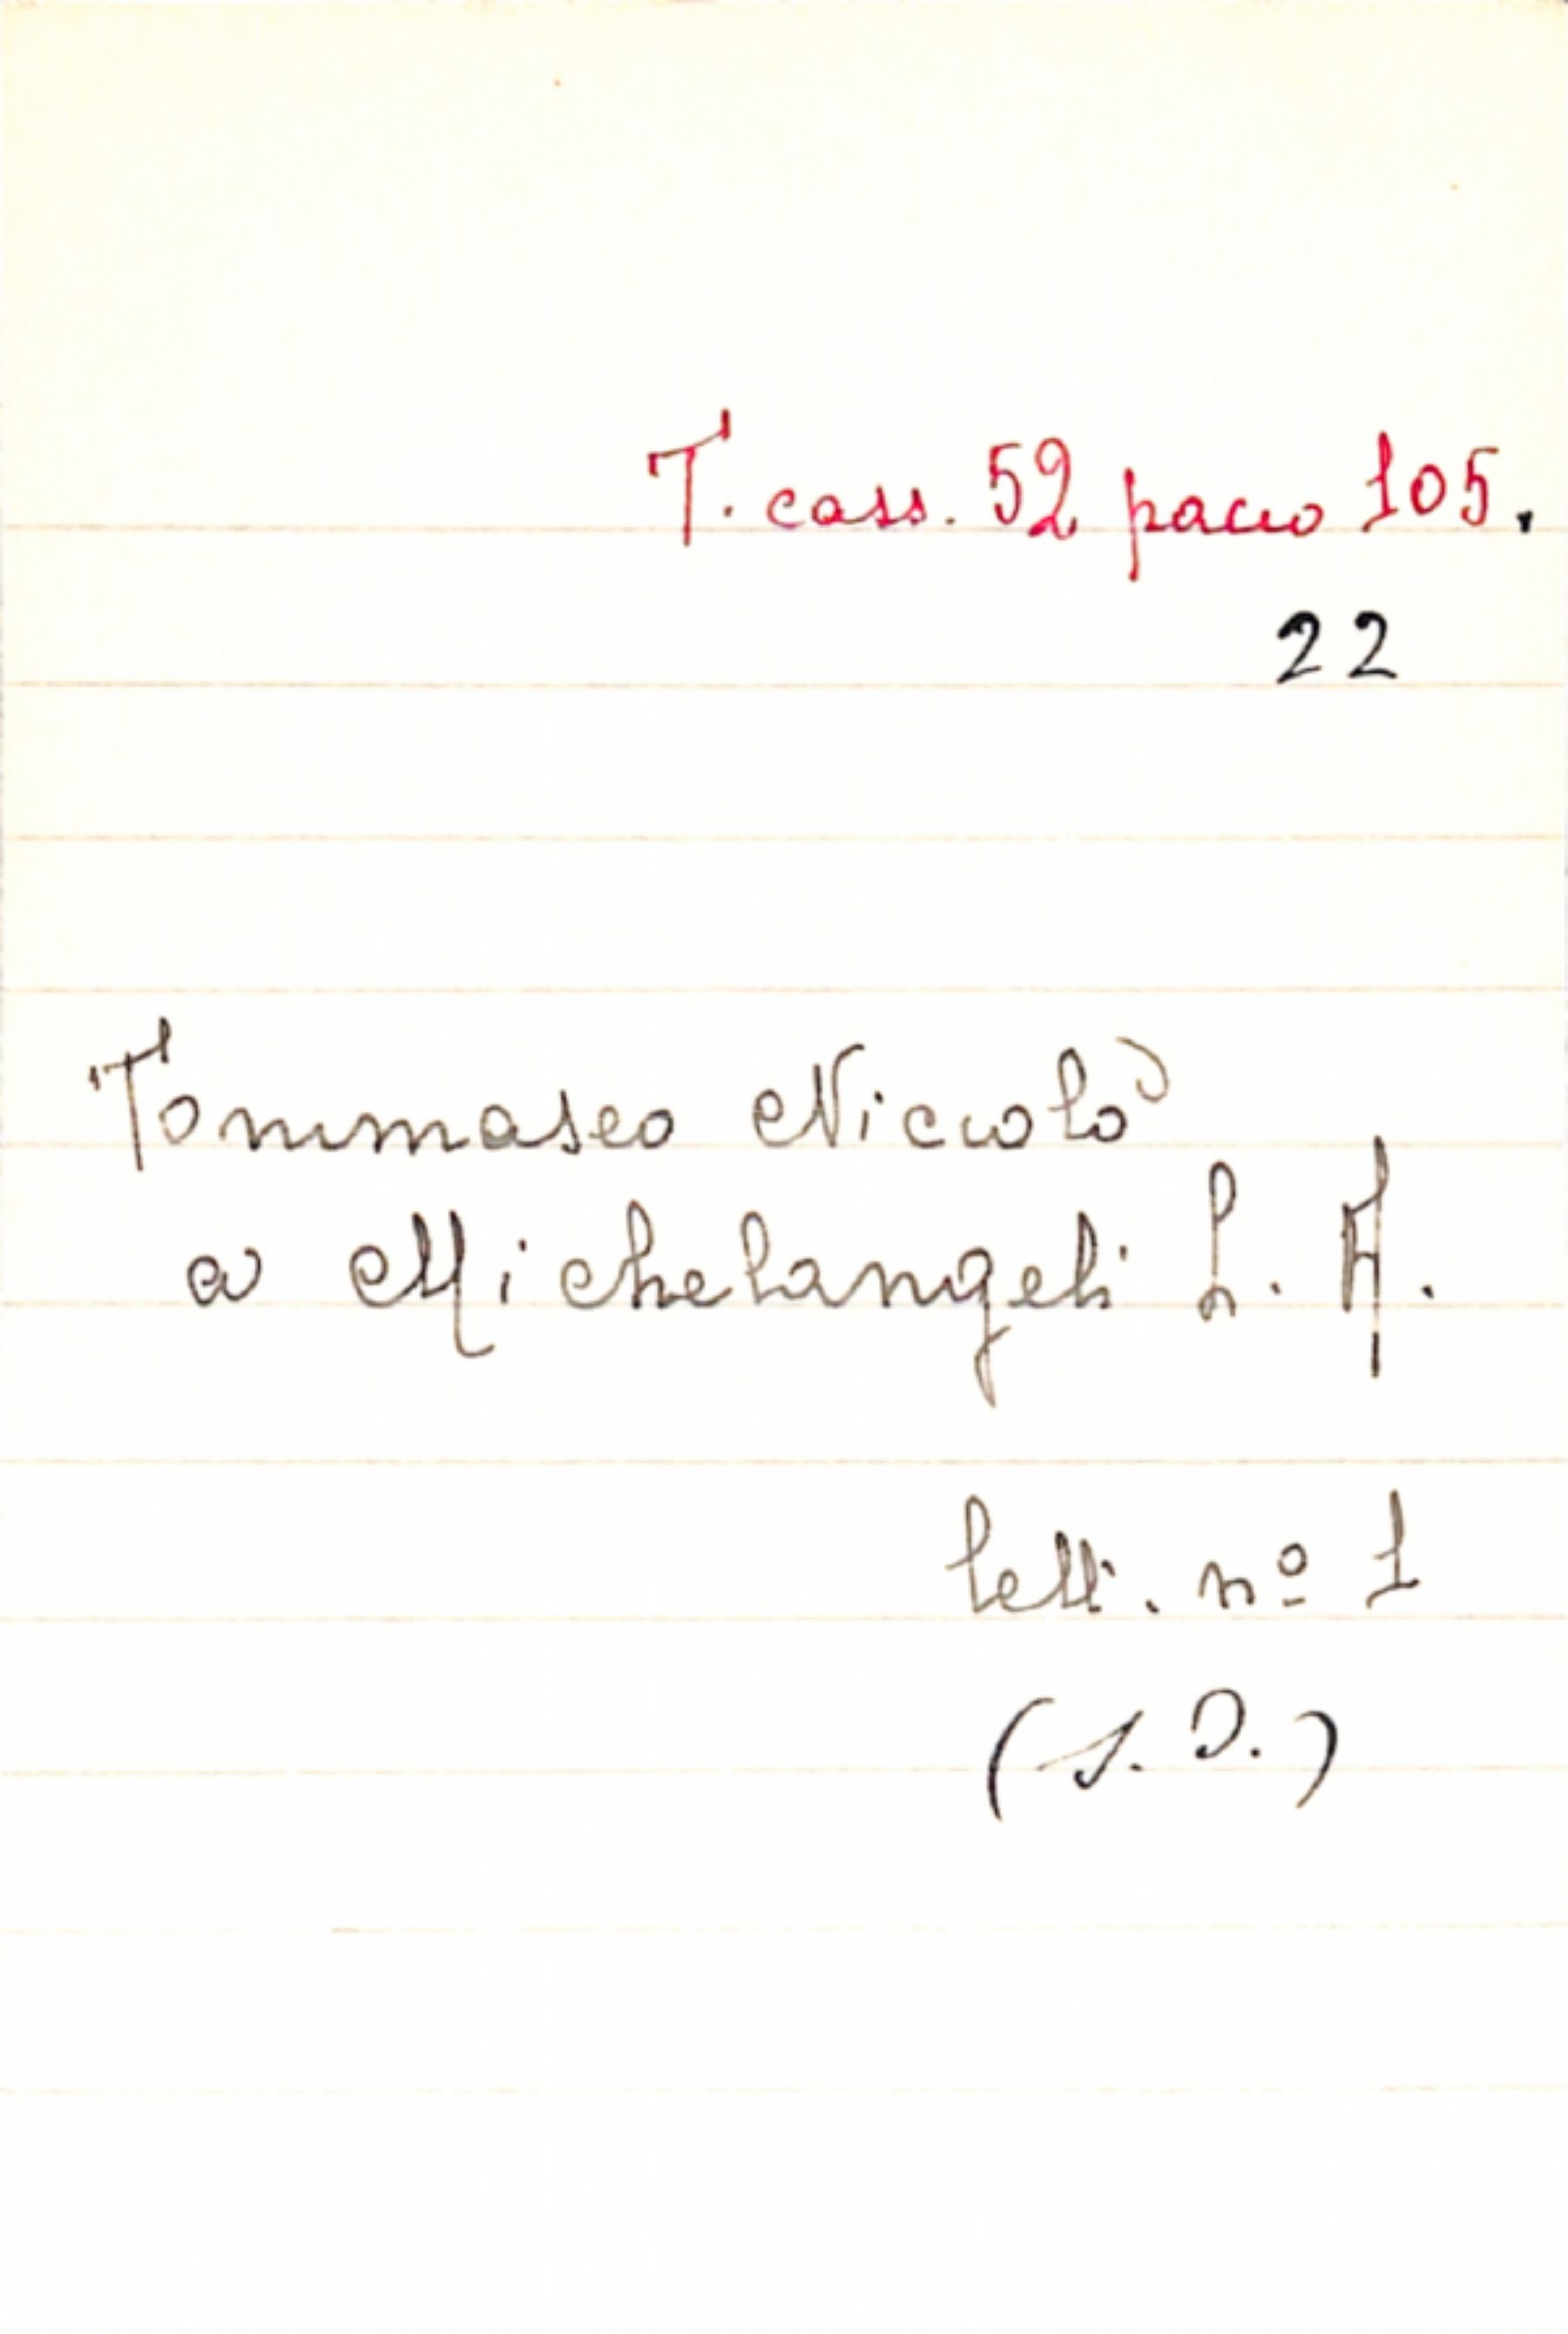 T. cass. 52 pacco 105.
22
Tommaseo Niccolò
a Michelangeli L. A.
lett. nº 1
(S. D.)